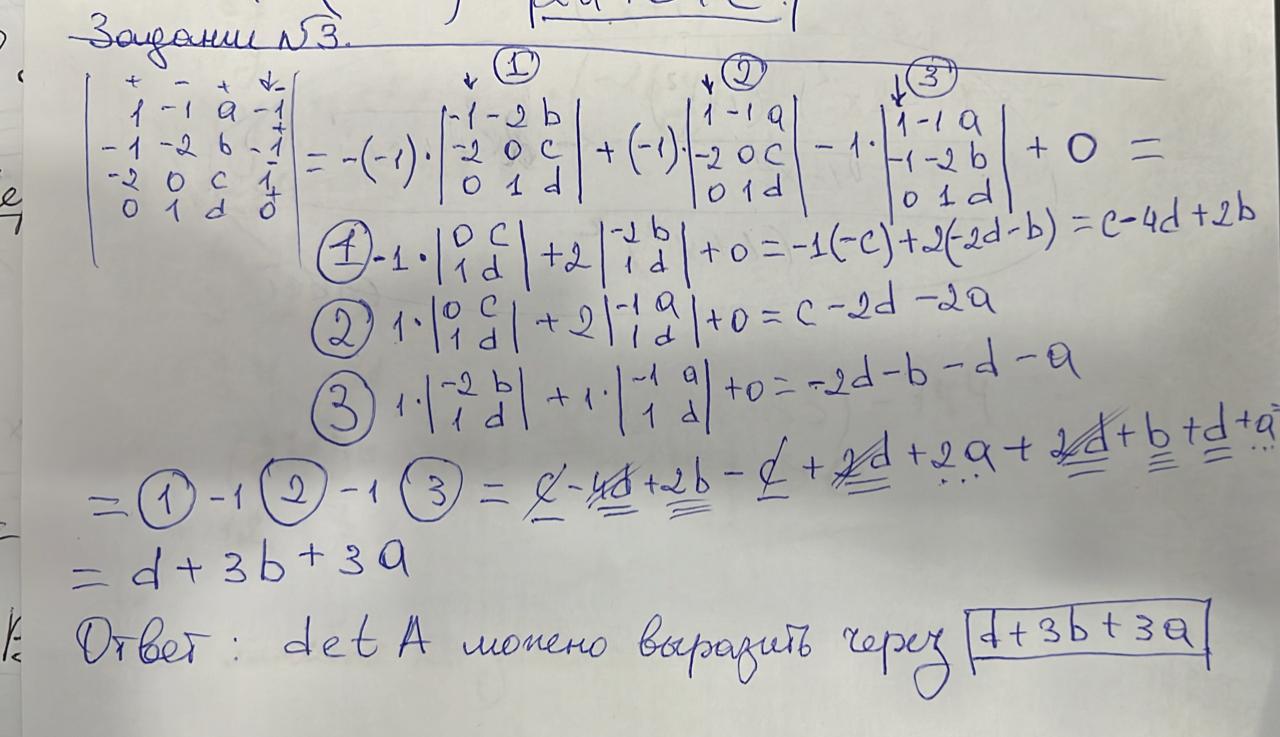 Задание №3.
+ - + -
| 1 -1 a -1 |
| -1 -2 b -1 |
| -2 0 c 1 |
| 0 1 d 0 |
= -(-1)· | -1 -2 b | -2 0 c | 0 1 d | + (-1)· | 1 -1 a | -2 0 c | 0 1 d | - 1· | 1 -1 a | -1 -2 b | 0 1 d | + 0 =
① ② ③
① -1· | 0 c | 1 d | + 2 | -2 b | 1 d | + 0 = -1(-c) + 2(-2d-b) = c-4d+2b
② 1· | 0 c | 1 d | + 2 | -1 a | 1 d | + 0 = c - 2d - 2a
③ 1· | -2 b | 1 d | + 1· | -1 a | 1 d | + 0 = -2d - b - d - a
= ① -1 ② -1 ③ = c - 4d + 2b - c + 2d + 2a + 2d + b + d + a =
= d + 3b + 3a
Ответ: det A можно выразить через d + 3b + 3a